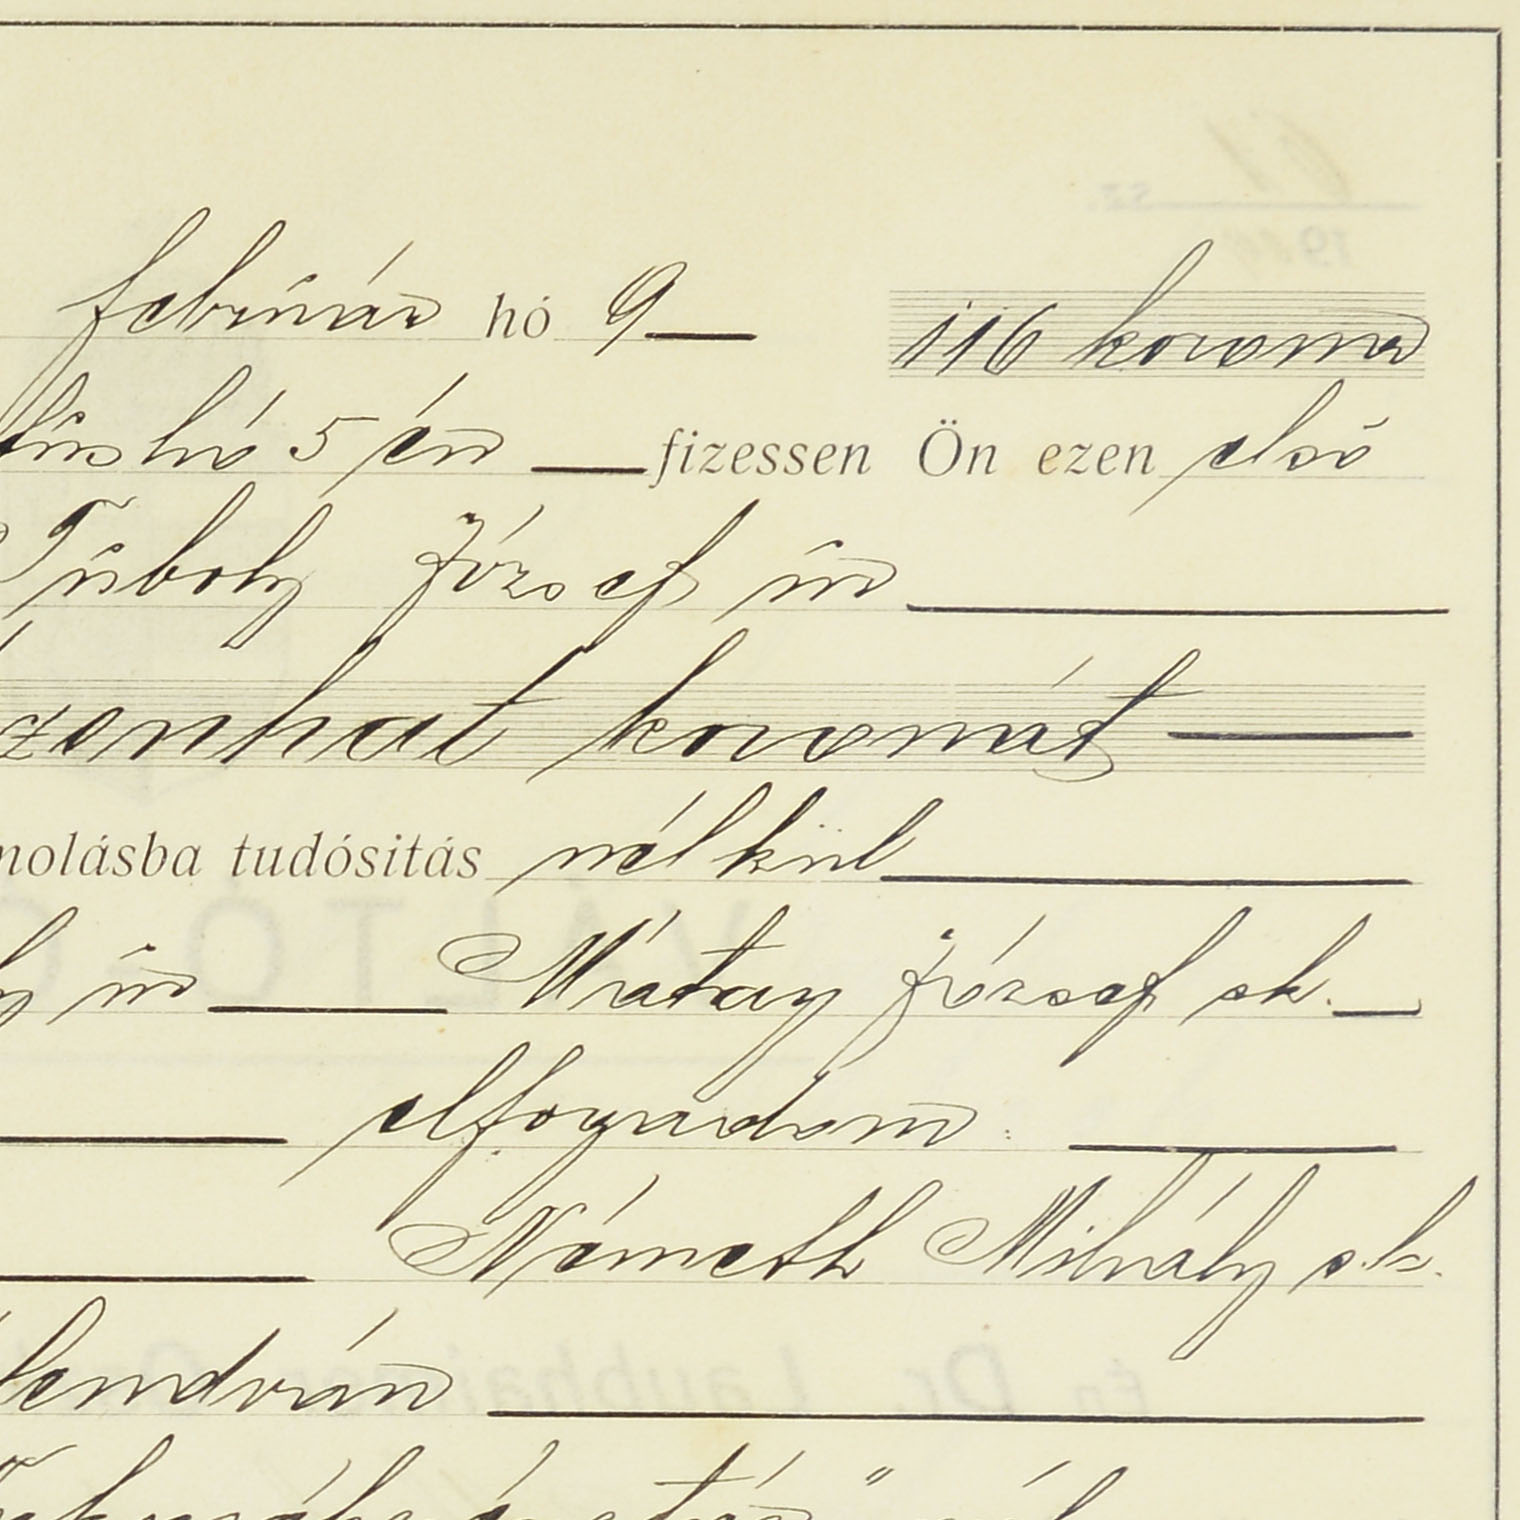 február hó 9 116 korona
hó 5 én fizessen Ön ezen első
Tuboly József úr
zonhat koronát
molásba tudósitás nélkül
úr Mátay József sk.
elfogadom.
Németh Mihály s.k.
lendván